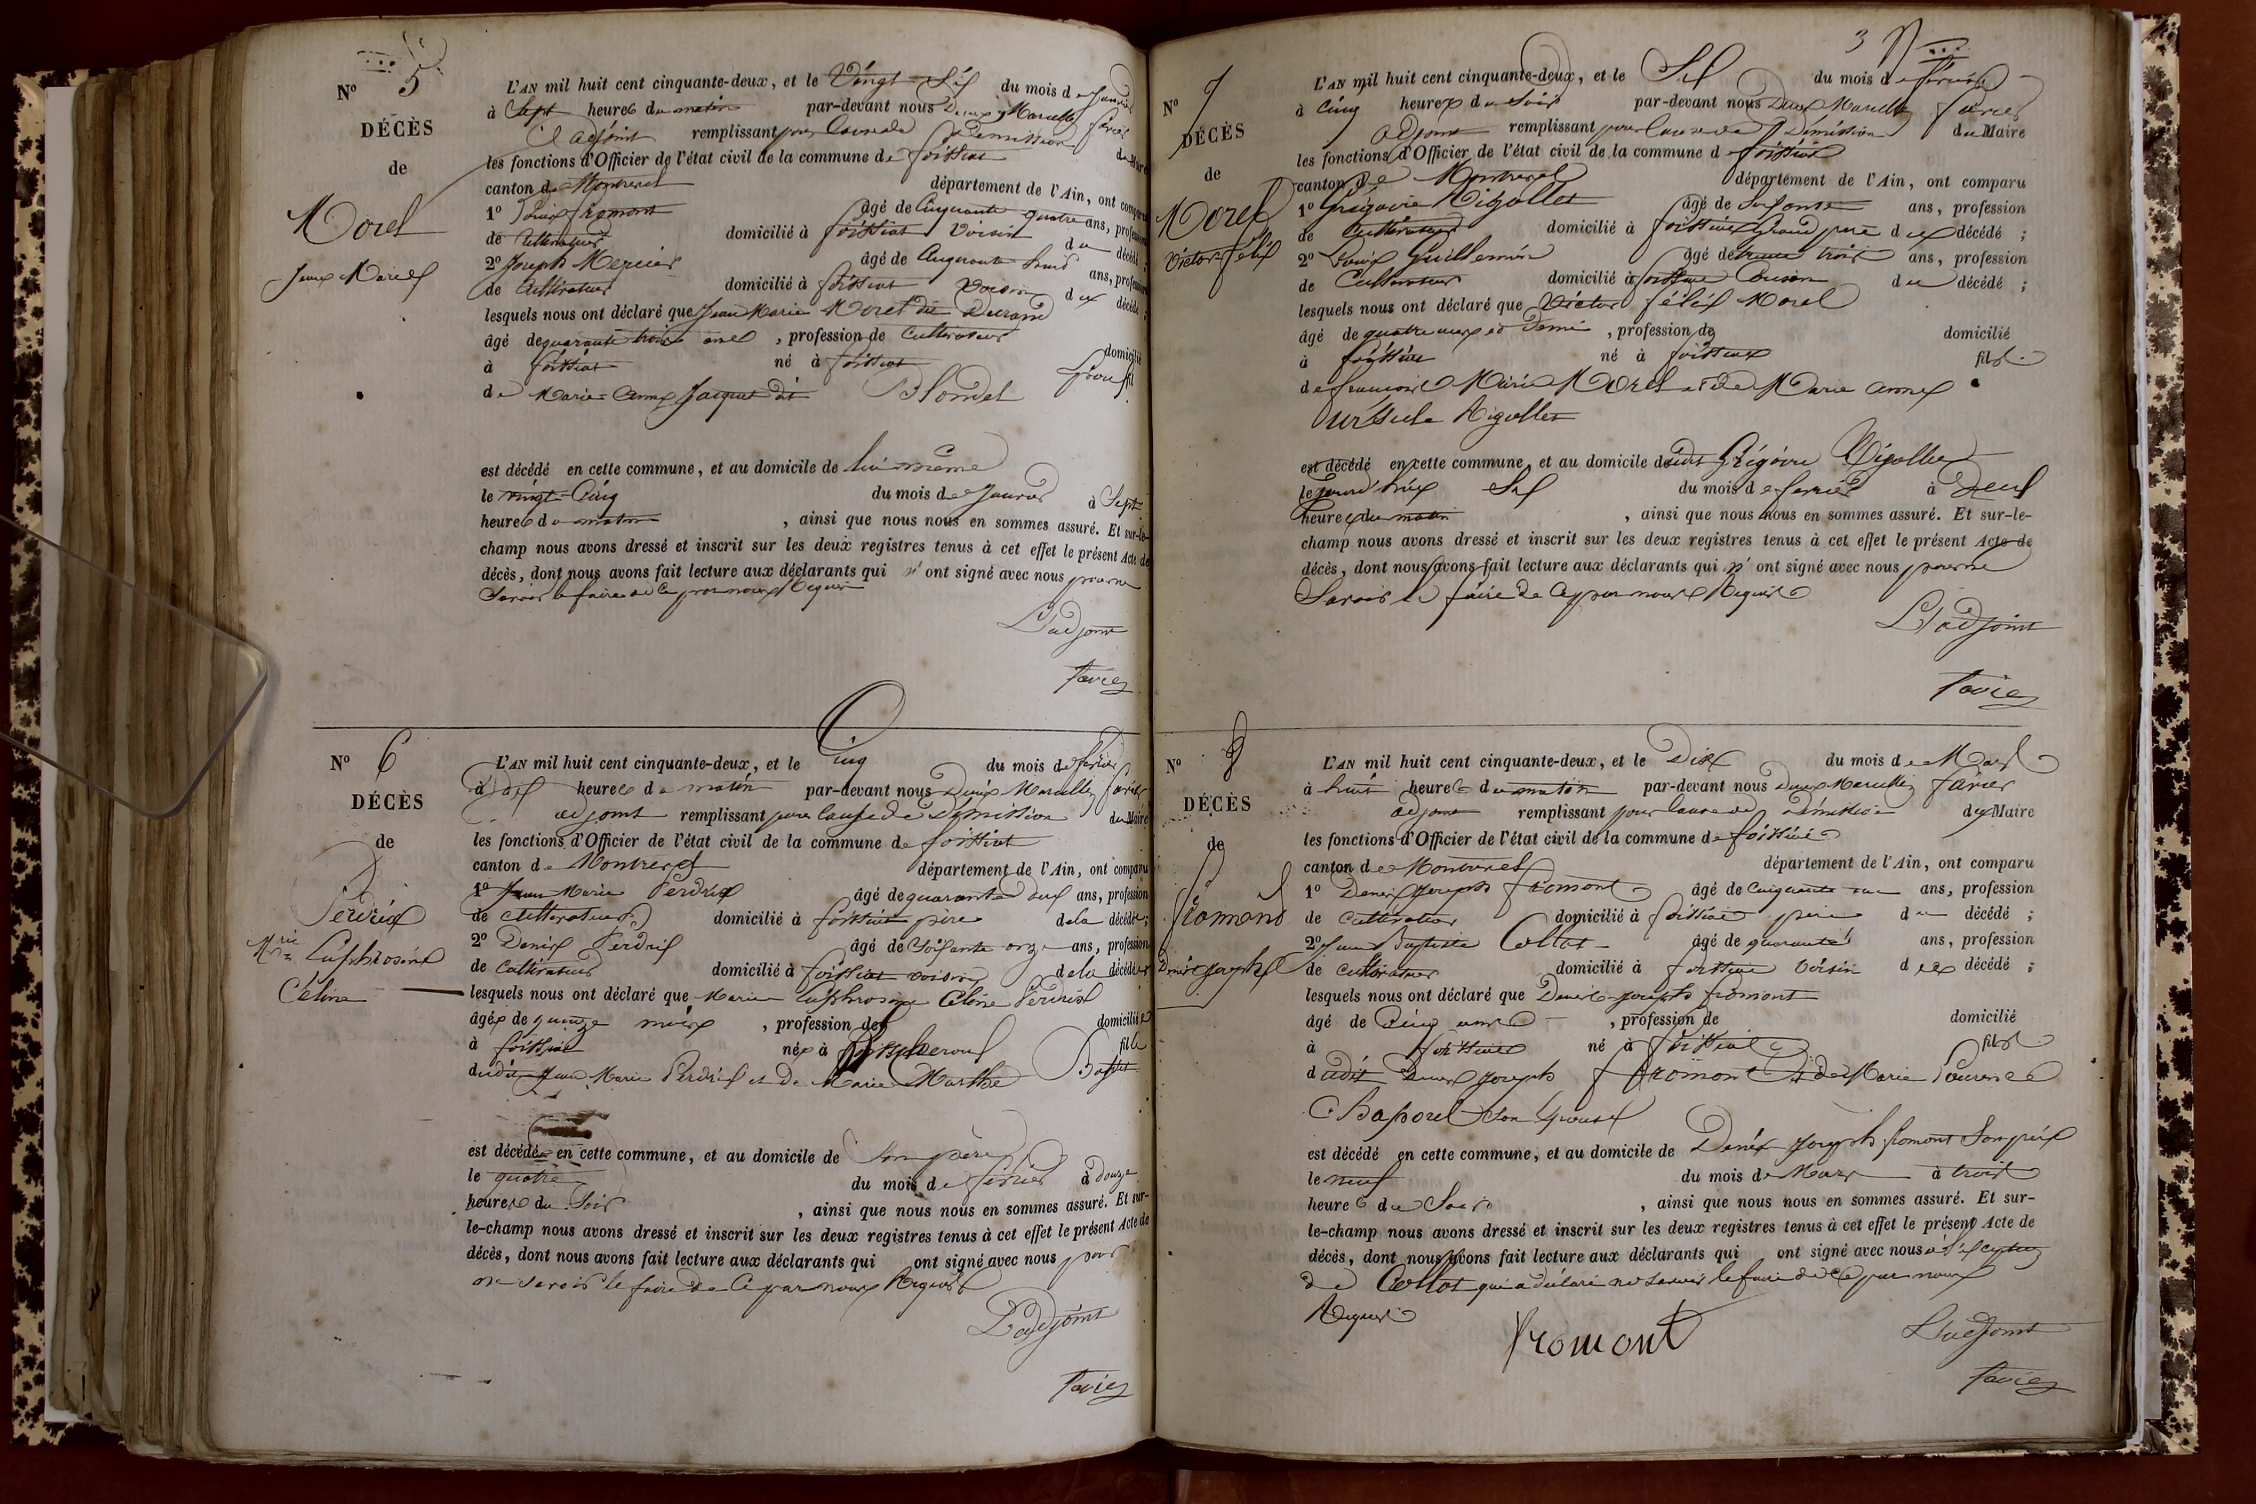 Nº 5
DÉCÈS
de
Morel
Jean Marie
L'AN mil huit cent cinquante-deux, et le Vingt-Six du mois de Janvier
à Sept heures du matin par-devant nous Denis Marcellin favier
adjoint remplissant pour cause de Démission du Maire
les fonctions d'Officier de l'état civil de la commune de foissiat
canton de Montrevel département de l'Ain, ont comparu
1º Denis fromont âgé de Cinquante quatre ans, profession
de Cultivateur domicilié à foissiat voisin du décédé ;
2º Joseph Mercier âgé de Cinquante ans, profession
de Cultivateur domicilié à foissiat voisin du décédé ;
lesquels nous ont déclaré que Jean Marie Morel dit Durand
âgé de quarante trois ans , profession de Cultivateur domicilié
à foissiat né à foissiat fils
de Marie-Anne Jacquet dit Blondel
est décédé en cette commune, et au domicile de lui-même
le vingt-Cinq du mois de Janvier à Sept
heures du matin , ainsi que nous nous en sommes assuré. Et sur-le-
champ nous avons dressé et inscrit sur les deux registres tenus à cet effet le présent Acte de
décès, dont nous avons fait lecture aux déclarants qui n' ont signé avec nous pour ne
Savoir le faire de Ce par nous Requis
L'adjoint
favier
Nº 6
DÉCÈS
de
Perdrix
Mrie
Euphrosine
Céline
L'AN mil huit cent cinquante-deux, et le Cinq du mois de février
à Dix heures du matin par-devant nous Denis Marcellin favier
adjoint remplissant pour cause de Démission du Maire
les fonctions d'Officier de l'état civil de la commune de foissiat
canton de Montrevel département de l'Ain, ont comparu
1º Jean Marie Perdrix âgé de quarante deux ans, profession
de Cultivateur domicilié à foissiat père de la décédée ;
2º Denis Perdrix âgé de Soixante onze ans, profession
de Cultivateur domicilié à foissiat voisin de la décédée
lesquels nous ont déclaré que Marie Euphrosine Céline Perdrix
âgée de quinze mois , profession de domiciliée
à foissiat née à fille
dudit Jean Marie Perdrix et de Marie Marthe
est décédée en cette commune, et au domicile de Son père
le quatre du mois de février à Douze
heures du Soir , ainsi que nous nous en sommes assuré. Et sur-
le-champ nous avons dressé et inscrit sur les deux registres tenus à cet effet le présent Acte de
décès, dont nous avons fait lecture aux déclarants qui ont signé avec nous pour
ne savoir le faire de Ce par nous Requis
L'adjoint
favier
3
Nº 7
DÉCÈS
de
Morel
Victor félix
L'AN mil huit cent cinquante-deux, et le Six du mois de février
à Cinq heures du Soir par-devant nous Denis Marcellin favier
adjoint remplissant pour cause de Démission du Maire
les fonctions d'Officier de l'état civil de la commune de foissiat
canton de Montrevel département de l'Ain, ont comparu
1º Grégoire Rigollet âgé de Soixante ans, profession
de Cultivateur domicilié à foissiat grand père du décédé ;
2º Denis Guillermin âgé de trente trois ans, profession
de Cultivateur domicilié à foissiat voisin du décédé ;
lesquels nous ont déclaré que Victor félix Morel
âgé de quatre ans et Demi , profession de domicilié
à foissiat né à foissiat fils
de françois Marie Morel et de Marie anne
Ursule Rigollet
est décédé en cette commune, et au domicile dudit Grégoire Rigollet
le jourd'hui Six du mois de février à Deux
heures du matin , ainsi que nous nous en sommes assuré. Et sur-le-
champ nous avons dressé et inscrit sur les deux registres tenus à cet effet le présent Acte de
décès, dont nous avons fait lecture aux déclarants qui n' ont signé avec nous pour ne
Savoir le faire de Ce par nous Requis
L'adjoint
favier
Nº 8
DÉCÈS
de
fromond
Denis joseph
L'AN mil huit cent cinquante-deux, et le Dix du mois de Mars
à huit heures du matin par-devant nous Denis Marcellin favier
adjoint remplissant pour cause de Démission du Maire
les fonctions d'Officier de l'état civil de la commune de foissiat
canton de Montrevel département de l'Ain, ont comparu
1º Denis Joseph fromont âgé de Cinquante ans, profession
de Cultivateur domicilié à foissiat père du décédé ;
2º Jean Baptiste Collot âgé de quarante ans, profession
de Cultivateur domicilié à foissiat voisin du décédé ;
lesquels nous ont déclaré que Denis joseph fromont
âgé de Cinq ans , profession de domicilié
à foissiat né à foissiat fils
dudit Denis Joseph fromont et de Marie Laurence
Chaporel Son Epouse
est décédé en cette commune, et au domicile de Denis Joseph fromont Son père
le neuf du mois de Mars à trois
heures du Soir , ainsi que nous nous en sommes assuré. Et sur-
le-champ nous avons dressé et inscrit sur les deux registres tenus à cet effet le présent Acte de
décès, dont nous avons fait lecture aux déclarants qui ont signé avec nous à l'Exception
de Collot qui a déclaré ne Savoir le faire de Ce par nous
Requis
fromont
L'adjoint
favier